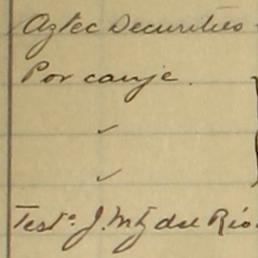 Aztec Securities
Por canje.
✓
✓
Testº J. Mtz del Río.